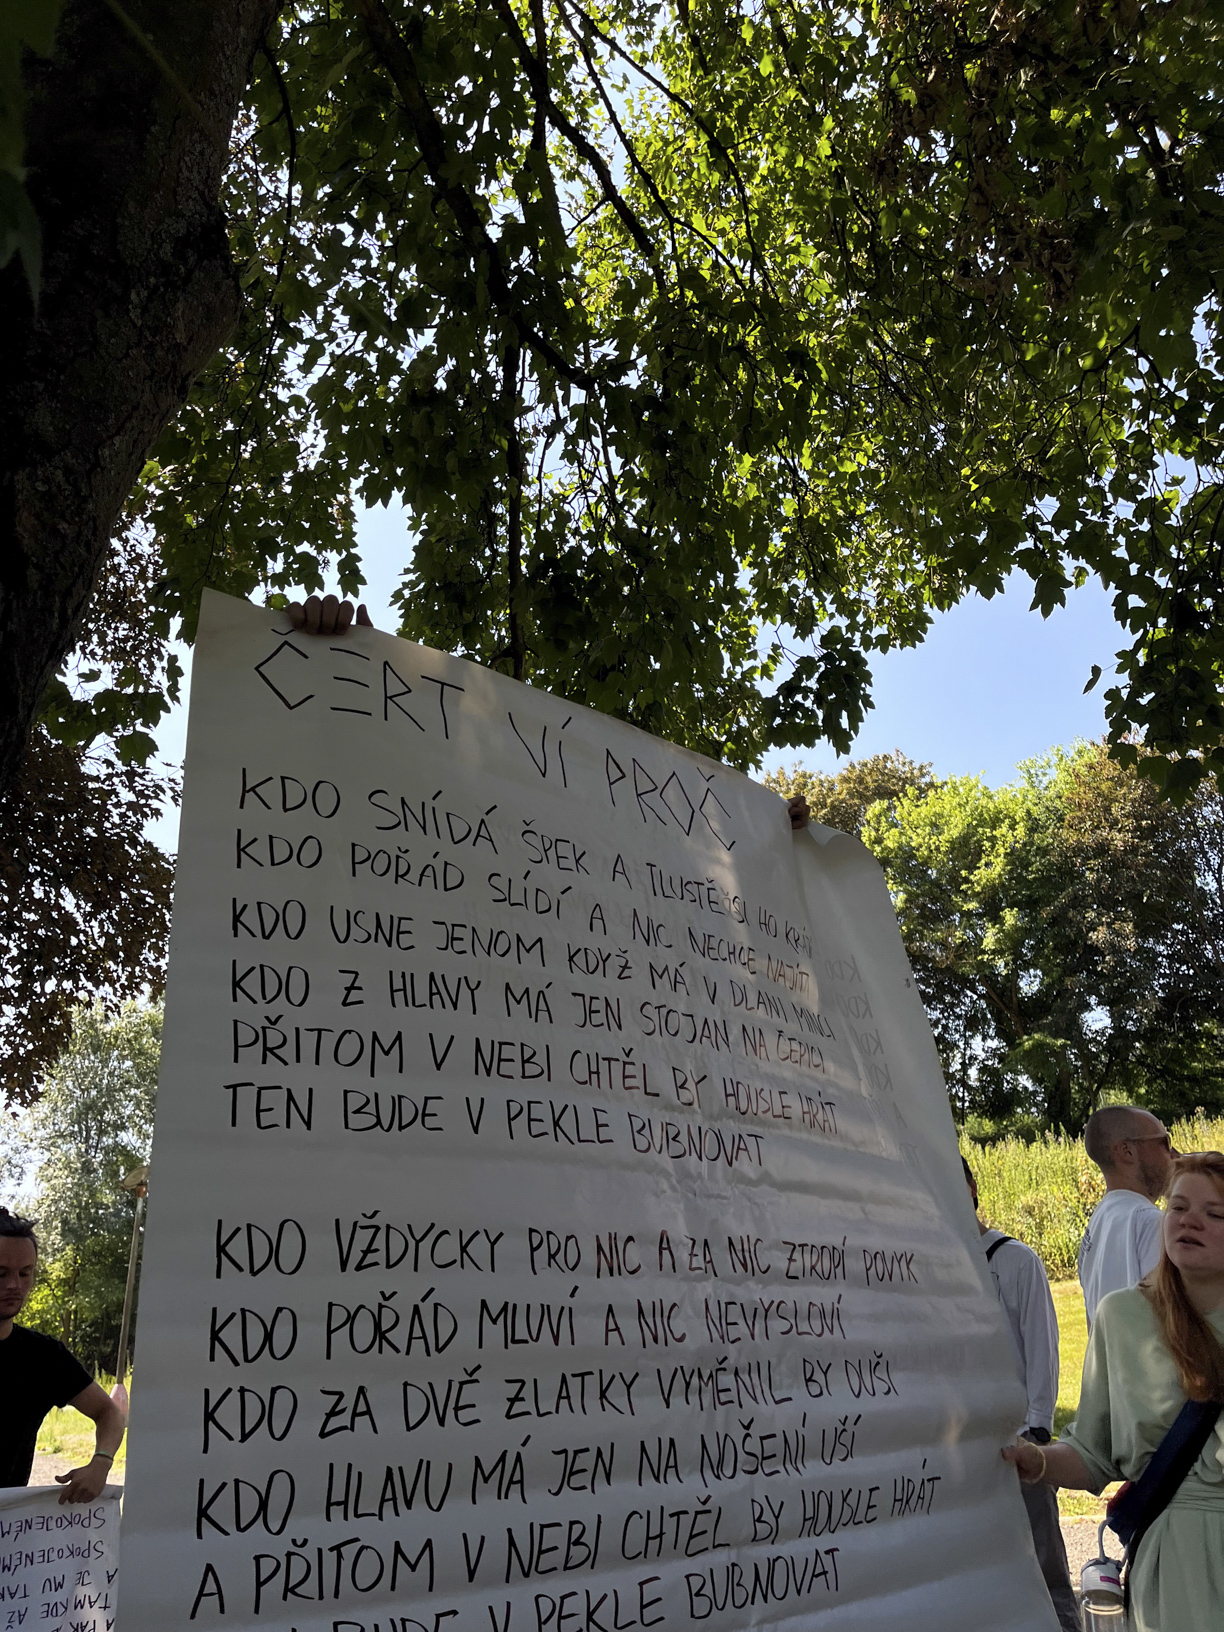 ČERT VÍ PROČ
KDO SNÍDÁ ŠPEK A TLUSTĚ SI HO
KDO POŘÁD SLÍDÍ A NIC NECHCE NAJÍT
KDO USNE JENOM KDYŽ MÁ V DLANI MINCI
KDO Z HLAVY MÁ JEN STOJAN NA ČEPICI
PŘITOM V NEBI CHTĚL BY HOUSLE HRÁT
TEN BUDE V PEKLE BUBNOVAT
KDO VŽDYCKY PRO NIC A ZA NIC ZTROPÍ POVYK
KDO POŘÁD MLUVÍ A NIC NEVYSLOVÍ
KDO ZA DVĚ ZLATKY VYMĚNIL BY DUŠI
KDO HLAVU MÁ JEN NA NOŠENÍ UŠÍ
A PŘITOM V NEBI CHTĚL BY HOUSLE HRÁT
BUDE V PEKLE BUBNOVAT
A PAK
TAM KDE AŽ
A JE MU TAK
SPOKOJENÉM
SPOKOJENÉM